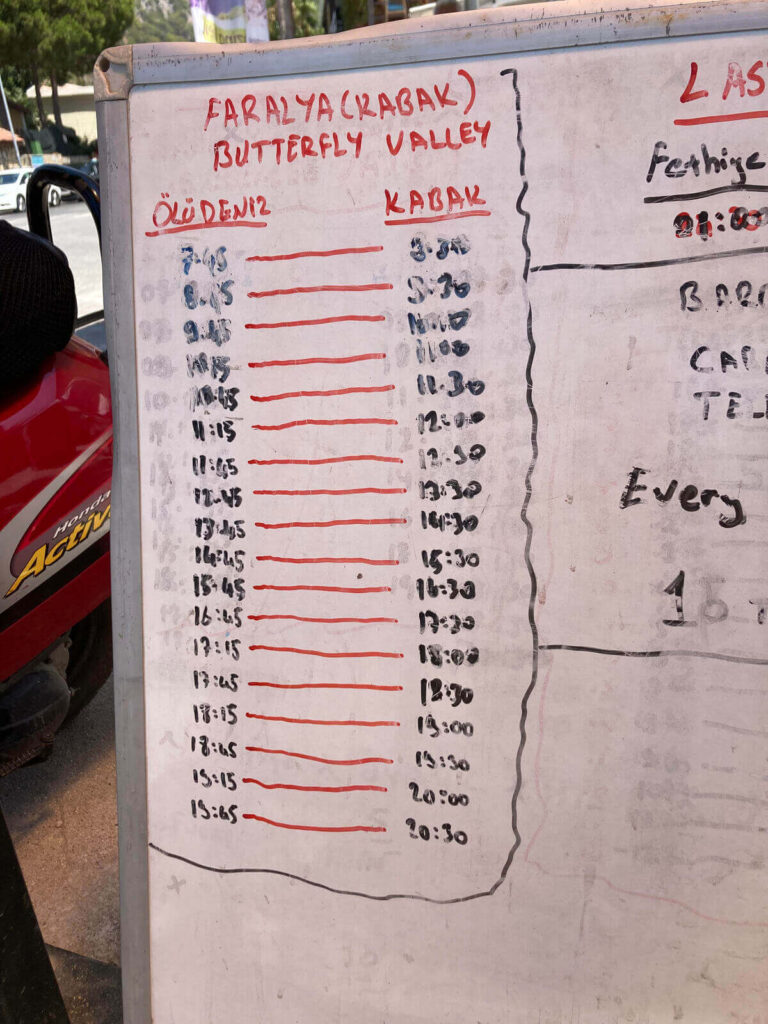 FARALYA(KABAK)
BUTTERFLY VALLEY
ÖLÜDENIZ KABAK
7:45 8:30
8:45 9:30
9:45 10:30
10:15 11:00
10:45 11:30
11:15 12:00
11:45 12:30
12:45 13:30
13:45 14:30
14:45 15:30
15:45 16:30
16:45 17:30
17:15 18:00
17:45 18:30
18:15 19:00
18:45 19:30
19:15 20:00
19:45 20:30
LAS
Fethiye
BAR
TEL
Every
10
Honda
Activ